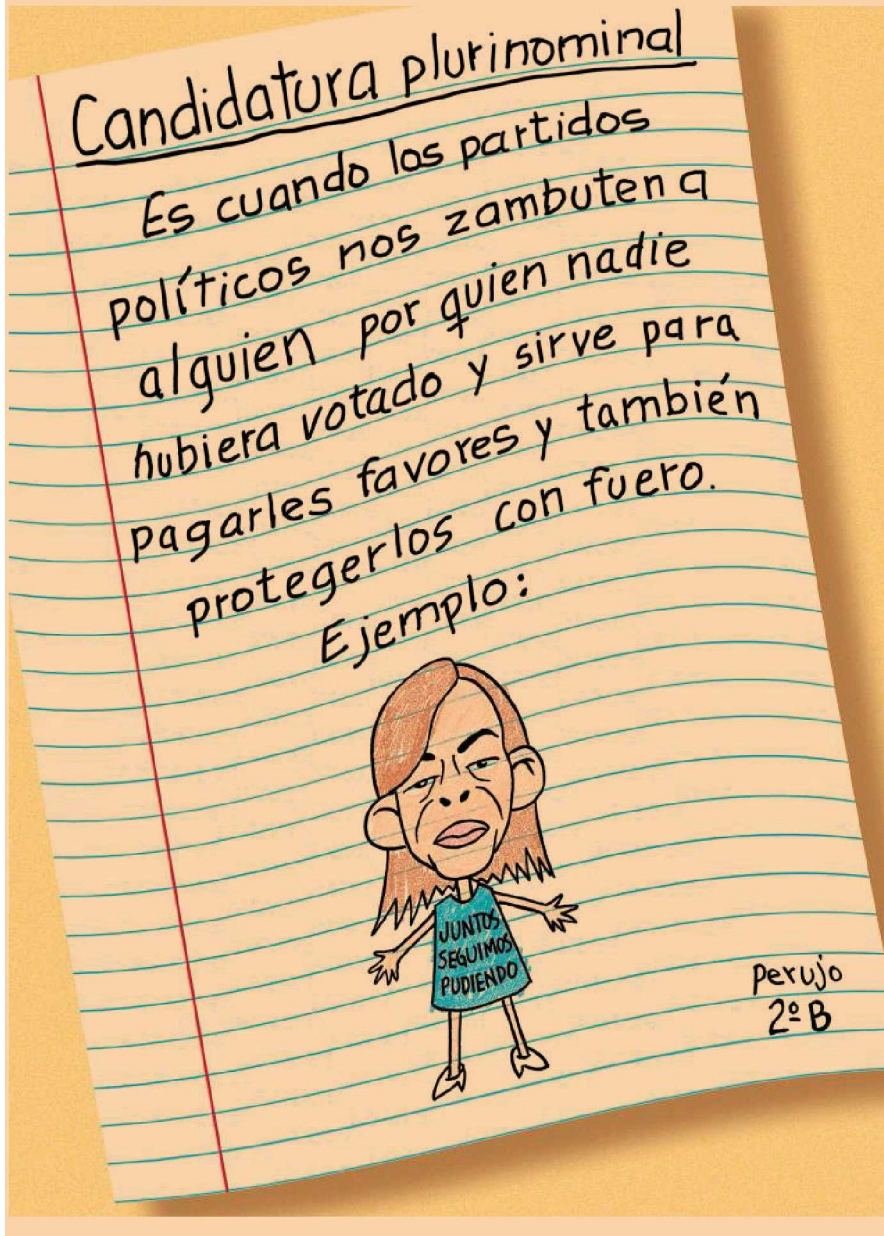 Candidatura plurinominal
Es cuando los partidos
políticos nos zambuten a
alguien por quien nadie
hubiera votado y sirve para
pagarles favores y también
protegerlos con fuero.
Ejemplo:
JUNTOS
SEGUIMOS
PUDIENDO
Perujo
2º B